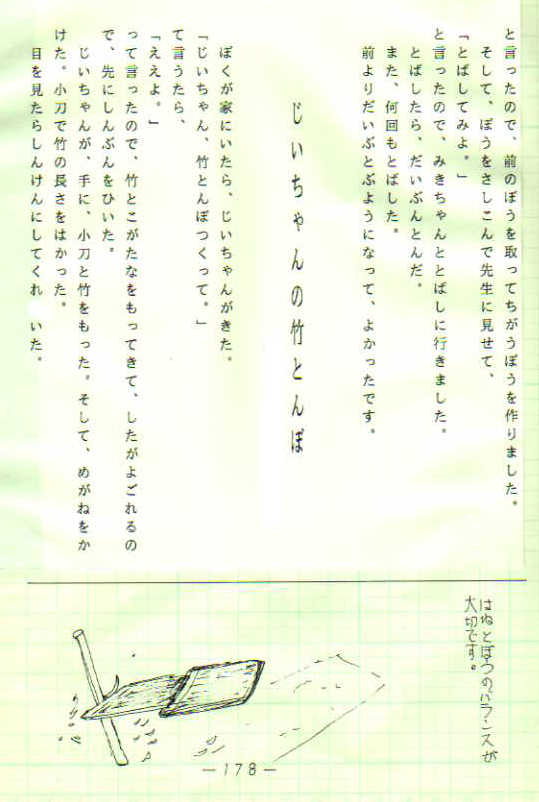 と言ったので、前のぼうを取ってちがうぼうを作りました。
そして、ぼうをさしこんで先生に見せて、
「とばしてみよ。」
と言ったので、みきちゃんととばしに行きました。
とばしたら、だいぶんとんだ。
また、何回もとばした。
前よりだいぶとぶようになって、よかったです。
じいちゃんの竹とんぼ
ぼくが家にいたら、じいちゃんがきた。
「じいちゃん、竹とんぼつくって。」
て言うたら、
「ええよ。」
って言ったので、竹とこがたなをもってきて、したがよごれるの
で、先にしんぶんをひいた。
じいちゃんが、手に、小刀と竹をもった。そして、めがねをか
けた。小刀で竹の長さをはかった。
目を見たらしんけんにしてくれ いた。
はねとぼうのバランスが
大切です。
―178―